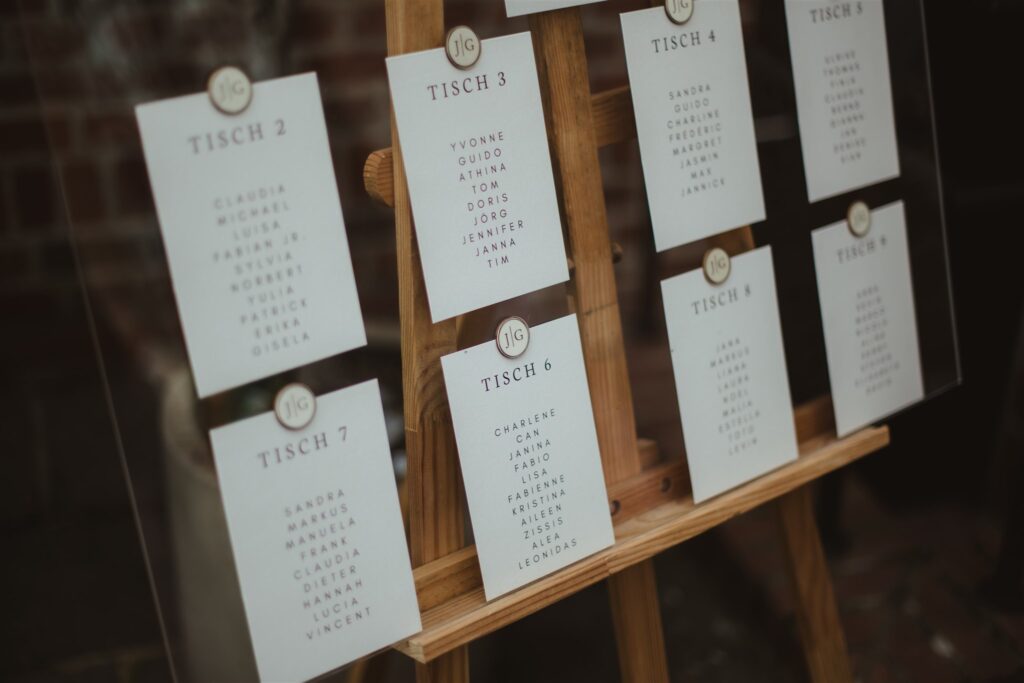 J|G
TISCH 2
CLAUDIA
MICHAEL
LUISA
FABIAN JR.
SYLVIA
NORBERT
YULIA
PATRICK
ERIKA
GISELA
J|G
TISCH 3
YVONNE
GUIDO
ATHINA
TOM
DORIS
JÖRG
JENNIFER
JANNA
TIM
J|G
TISCH 4
SANDRA
GUIDO
CHARLINE
FRÉDÉRIC
MARGRET
JASMIN
MAX
JANNICK
J|G
TISCH 5
ULRIKE
THOMAS
CLAUDIA
BERND
DIANNA
JAN
DENISE
J|G
TISCH 7
SANDRA
MARKUS
MANUELA
FRANK
CLAUDIA
DIETER
HANNAH
LUCIA
VINCENT
J|G
TISCH 6
CHARLENE
CAN
JANINA
FABIO
LISA
FABIENNE
KRISTINA
AILEEN
ZISSIS
ALEA
LEONIDAS
J|G
TISCH 8
JANA
MARKUS
LIANA
LAURA
NOEL
MALIA
ESTELLA
TOTO
LEVIN
J|G
TISCH